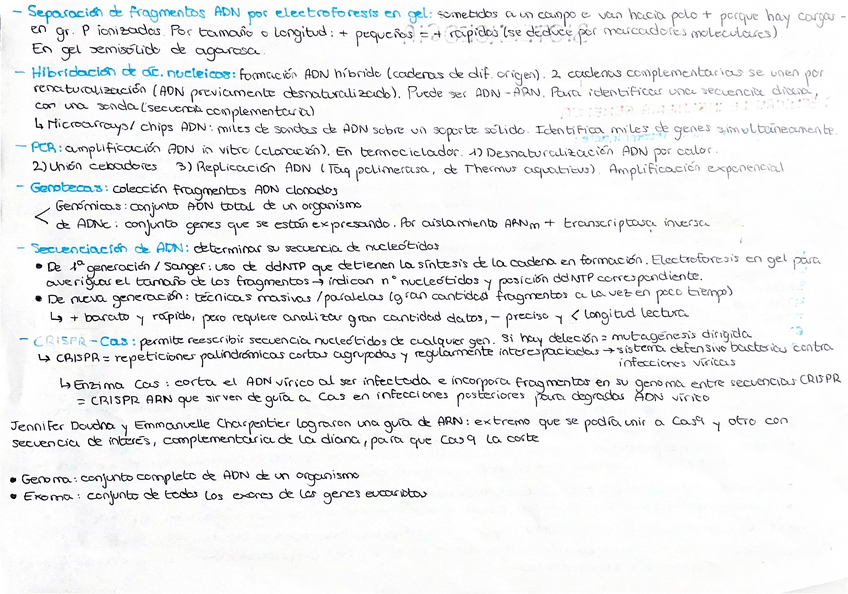 - Separación de fragmentos ADN por electroforesis en gel: sometidos a un campo e van hacia polo + porque hay cargas -
en gr. P ionizadas. Por tamaño o longitud: + pequeños = + rápidos (se deduce por marcadores moleculares)
En gel semisólido de agarosa.
- Hibridación de ác. nucleicos: formación ADN híbrido (cadenas de dif. origen). 2 cadenas complementarias se unen por
renaturalización (ADN previamente desnaturalizado). Puede ser ADN-ARN. Para identificar una secuencia diana,
con una sonda (secuencia complementaria)
↳ Microarrays/ chips ADN: miles de sondas de ADN sobre un soporte sólido. Identifica miles de genes simultáneamente.
- PCR: amplificación ADN in vitro (clonación). En termociclador. 1) Desnaturalización ADN por calor.
2) Unión cebadores 3) Replicación ADN (Taq polimerasa, de Thermus aquaticus). Amplificación exponencial
- Genotecas: colección fragmentos ADN clonados
< Genómicas: conjunto ADN total de un organismo
de ADNc: conjunto genes que se están expresando. Por aislamiento ARNm + transcriptasa inversa
- Secuenciación de ADN: determinar su secuencia de nucleótidos
• De 1ª generación / Sanger: uso de ddNTP que detienen la síntesis de la cadena en formación. Electroforesis en gel para
averiguar el tamaño de los fragmentos → indican nº nucleótidos y posición ddNTP correspondiente.
• De nueva generación: técnicas masivas / paralelas (gran cantidad fragmentos a la vez en poco tiempo)
↳ + barato y rápido, pero requiere analizar gran cantidad datos, - preciso y < longitud lectura
- CRISPR-Cas: permite reescribir secuencia nucleótidos de cualquier gen. Si hay deleción = mutagénesis dirigida
↳ CRISPR = repeticiones palindrómicas cortas agrupadas y regularmente interespaciadas → sistema defensivo bacterias contra
infecciones víricas
↳ Enzima Cas: corta el ADN vírico al ser infectada e incorpora fragmentos en su genoma entre secuencias CRISPR
= CRISPR ARN que sirven de guía a Cas en infecciones posteriores para degradas ADN vírico
Jennifer Doudna y Emmanuelle Charpentier lograron una guía de ARN: extremo que se podría unir a Cas9 y otro con
secuencia de interés, complementaria de la diana, para que Cas9 la corte
• Genoma: conjunto completo de ADN de un organismo
• Exoma: conjunto de todos los exones de los genes eucariotas